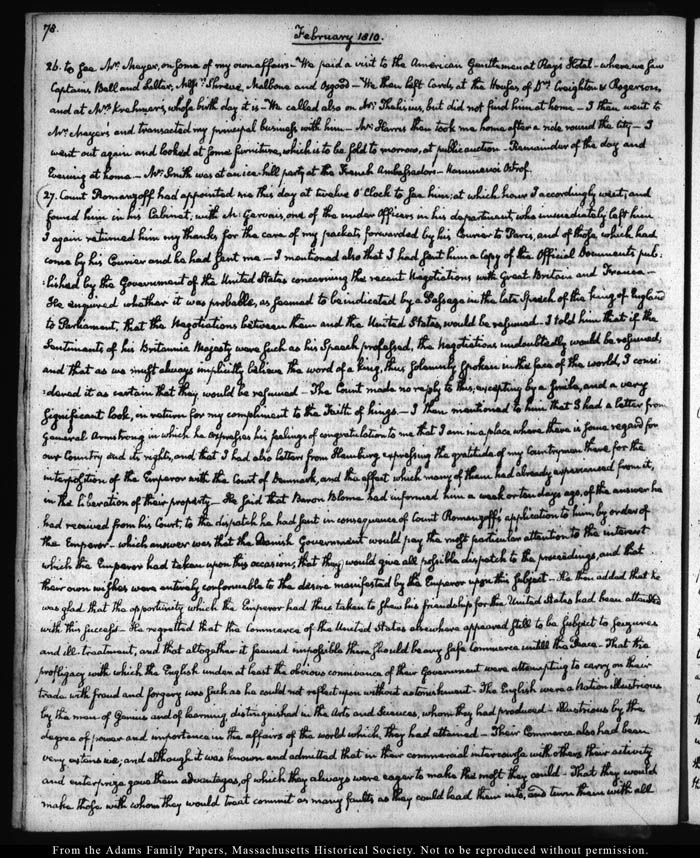 78.
February 1810.
26. to see Mr. Meyer, on some of my own affairs — We paid a visit to the American Gentlemen at Ray's Hotel — where we saw
Captains Bell and Salter, Messrs. Shreve, Malbone and Osgood — We then left Cards, at the Houses of Drs. Creighton & Rogerson,
and at Mrs. Krehmer's, whose birth day it is — We called also on Mr. but did not find him at home — I then went to
Mr. Meyer's and transacted my principal business with him — Mr. Harris then took me home after a ride round the city — I
went out again and looked at some furniture, which is to be sold to morrow, at public auction — Remainder of the day and
Evening at home — Mr. Smith was at an ice-hill party at the French Ambassador's — Kamennoi Ostrof.
27. Count Romanzoff had appointed me this day at twelve O'Clock to see him; at which hour I accordingly went, and
found him in his Cabinet, with M. Gervais, one of the under Officers in his department, who immediately left him
I again returned him my thanks for the care of my packets forwarded by his Courier to Paris, and of those which had
come by his Courier and he had sent me — I mentioned also that I had sent him a Copy of the Official Documents pub-
:lished by the Government of the United States concerning the recent Negotiations with Great Britain and France —
He enquired whether it was probable, as seemed to be indicated by a Passage in the late Speech of the king of England
to Parliament, that the Negotiations between them and the United States, would be resumed — I told him that if the
Sentiments of his Britannic Majesty were such as his Speech professed, the Negotiations undoubtedly would be resumed,
and that as we must always implicitly believe the word of a king, thus solemnly spoken in the face of the world, I consi-
:dered it as certain that they would be resumed — The Count made no reply to this, excepting by a smile, and a very
significant look, in return for my compliment to the faith of kings. — I then mentioned to him that I had a letter from
General Armstrong in which he expresses his feelings of congratulation to me that I am in a place where there is some regard for
our Country and its rights, and that I had also letters from Hamburg expressing the gratitude of my Countrymen there for the
interposition of the Emperor with the Court of Denmark, and the effect which many of them had already experienced from it,
in the liberation of their property — He said that Baron Blome had informed him a week or ten days ago, of the answer he
had received from his Court, to the dispatch he had sent in consequence of Count Romanzoff's application to him, by order of
the Emperor — which answer was that the Danish Government would pay the most particular attention to the interest
which the Emperor had taken upon this occasion; that they would give all possible dispatch to the proceedings, and that
their own wishes were entirely conformable to the desire manifested by the Emperor upon this subject — He then added that he
was glad that the opportunity which the Emperor had thus taken to shew his friendship for the United States had been attended
with this success — He regretted that the Commerce of the United States elsewhere appeared still to be subject to seizures
and ill-treatment, and that altogether it seemed impossible there should be any safe Commerce untill the Peace — That the
profligacy with which the English under at least the obvious connivance of their Government were attempting to carry on their
trade with fraud and forgery was such as he could not reflect upon without astonishment — The English were a Nation illustrious
by the men of Genius and of learning distinguished in the Arts and Sciences, whom they had produced — illustrious by the
degree of power and importance in the affairs of the world which they had attained — Their Commerce also had been
very extensive; and although it was known and admitted that in their commercial intercourse with others their activity
and enterprize gave them advantages, of which they always were eager to make the most they could — That they would
make those with whom they would treat commit as many faults as they could lead them into, and turn them with all
From the Adams Family Papers, Massachusetts Historical Society. Not to be reproduced without permission.